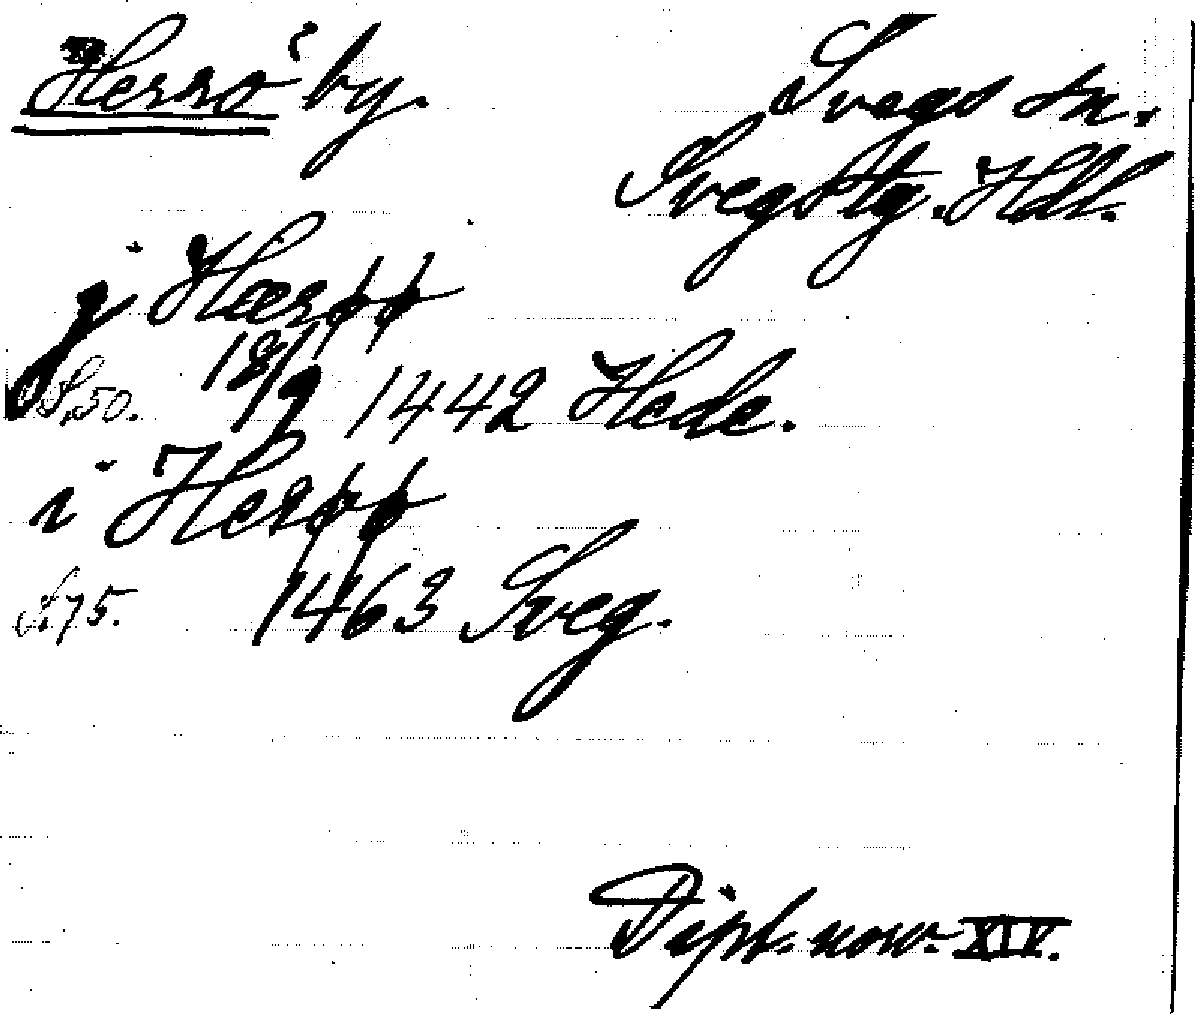 Herrö by.
Svegs sn.
Svegs tg. Hdl.
j Hærøø
S. 50. 18/9 1442 Hede.
i Herøø
S. 75. 1463 Sveg.
Dipl. norv. XIV.